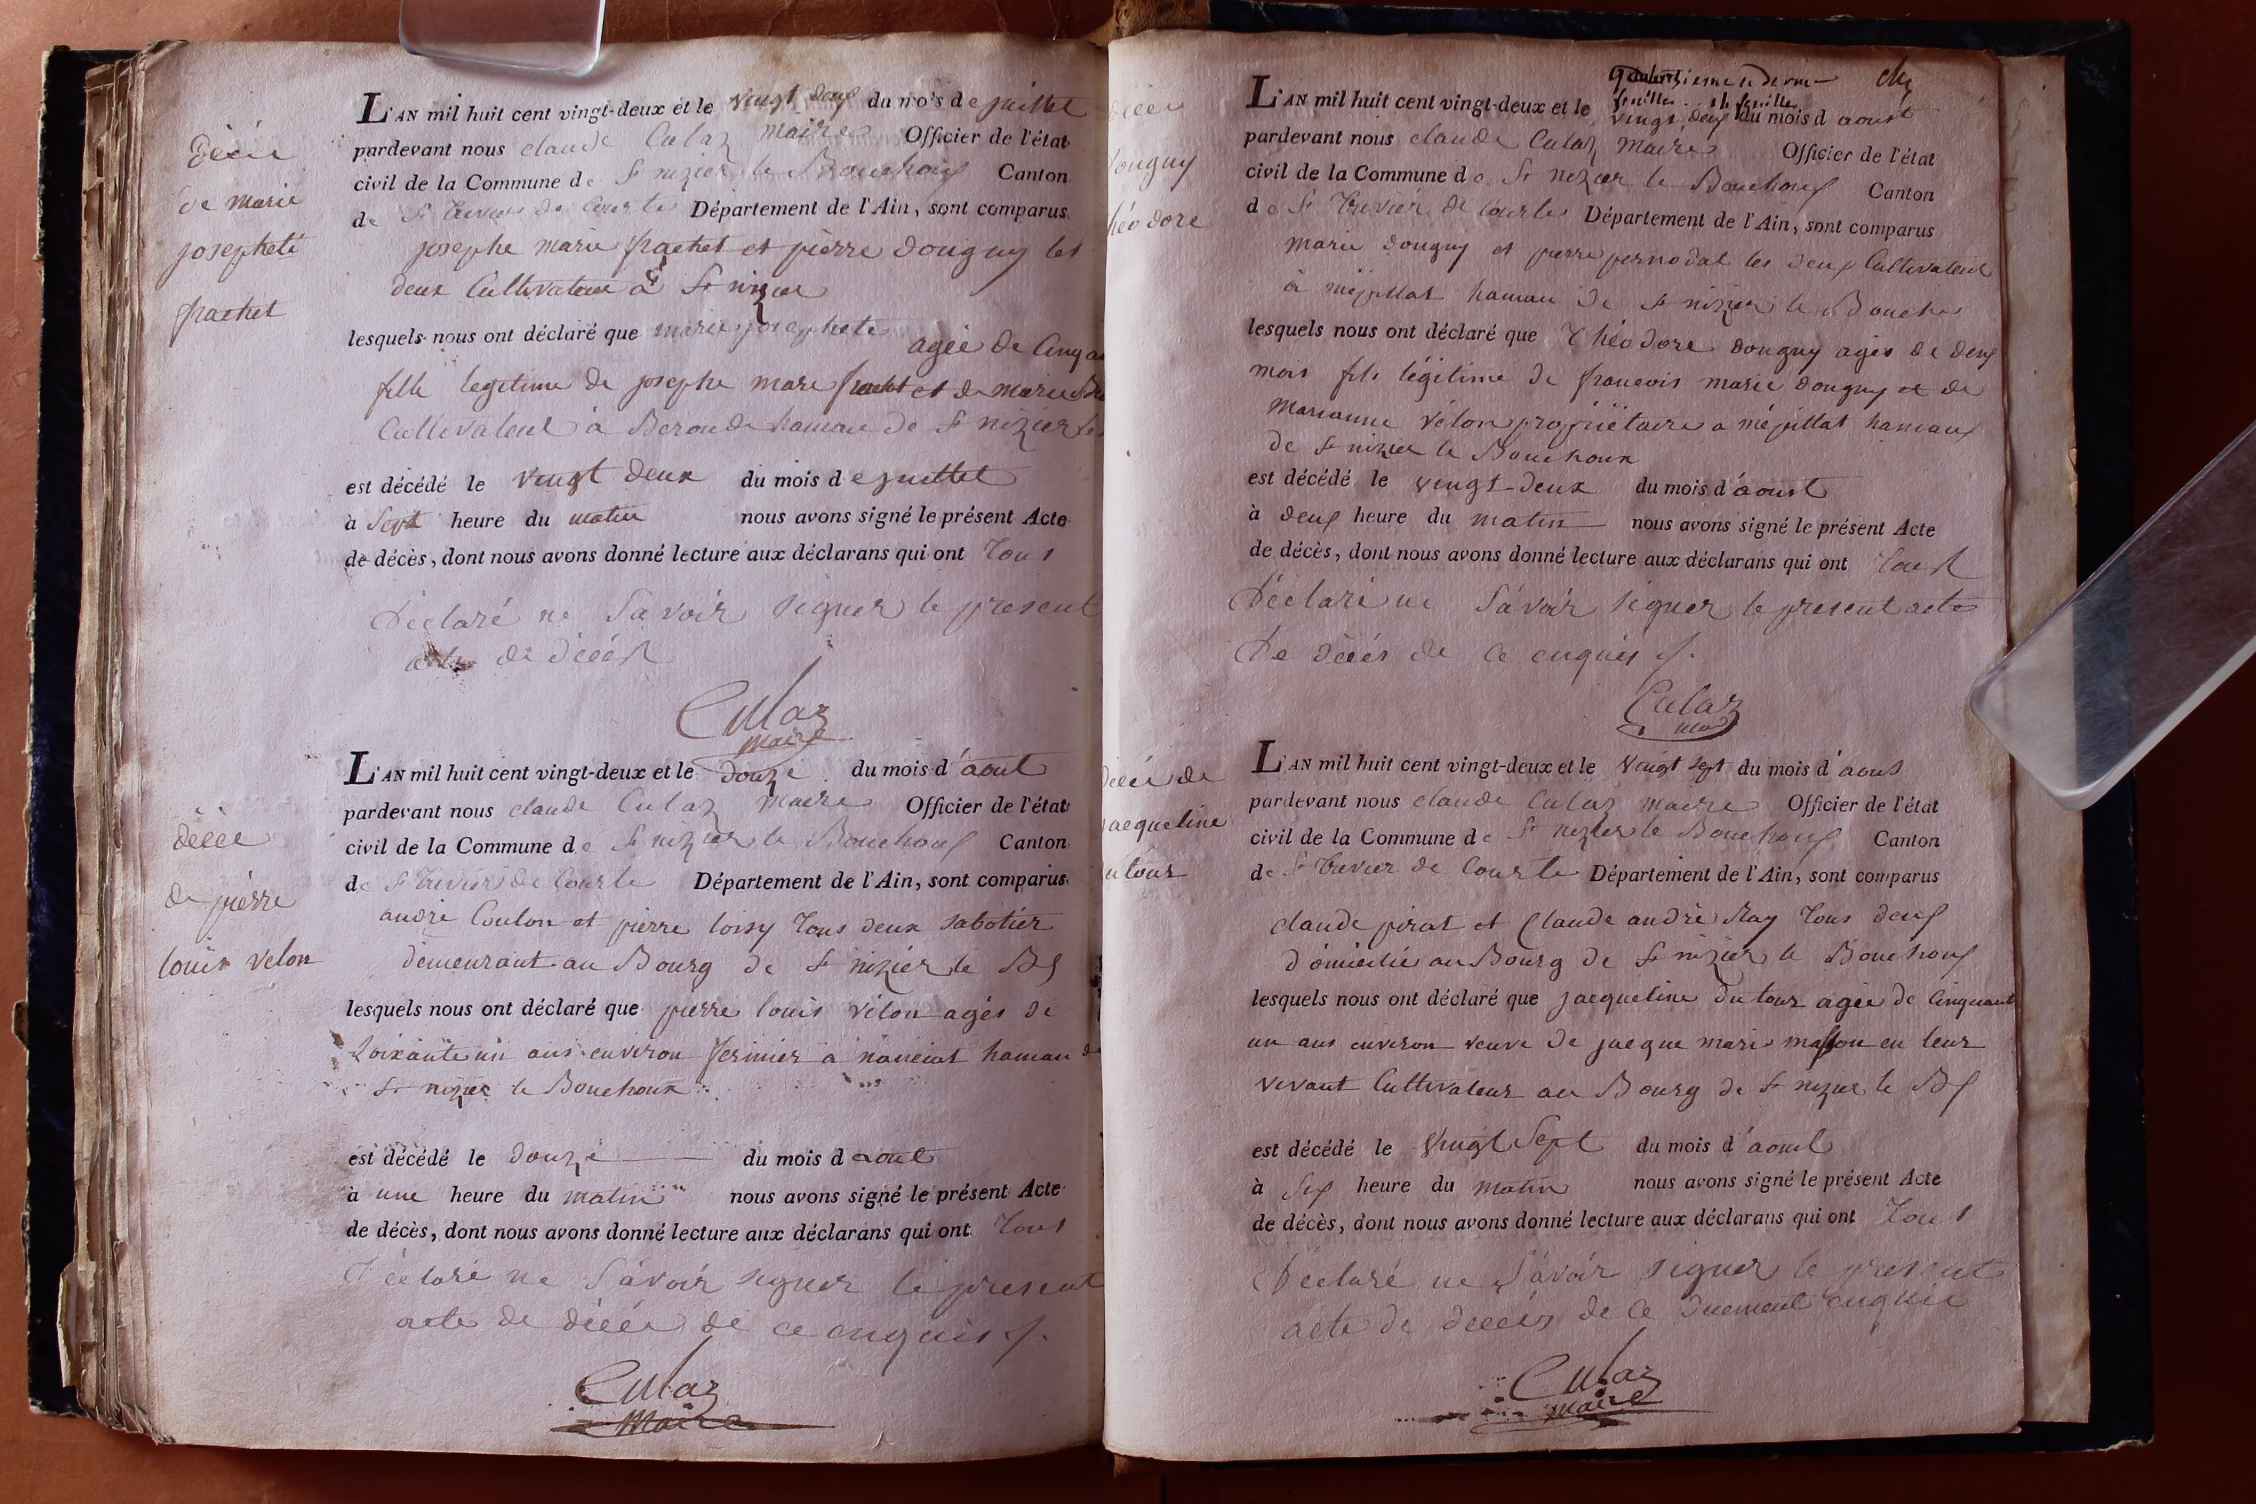 décée
de marie
josephete
frachet
L'AN mil huit cent vingt-deux et le vingt deux du mois de juillet
pardevant nous claude Culaz maire Officier de l'état
civil de la Commune de St nizier le Bouchoux Canton
de St trivier de Courte Département de l'Ain, sont comparus
josephe marie frachet et pierre Dougny les
deux Cultivateur à St nizier
lesquels nous ont déclaré que marie josephete
agée de Cinq
fille legitime de josephe marie frachet et de marie
Cultivateur à hamau de St nizier le
est décédé le vingt deux du mois de juillet
à Sept heure du matin nous avons signé le présent Acte
de décès, dont nous avons donné lecture aux déclarans qui ont tous
Déclaré ne Savoir signer le present
acte de décès
Culaz
maire
décée
de pierre
louis velon
L'AN mil huit cent vingt-deux et le douze du mois d'aout
pardevant nous claude Culaz maire Officier de l'état
civil de la Commune de St nizier le Bouchoux Canton
de St trivier de Courte Département de l'Ain, sont comparus
andré Coulon et pierre loisy tous deux sabotier
demeurant au Bourg de St nizier le Bx
lesquels nous ont déclaré que pierre louis vélon agés de
Soixante un ans environ fermier à hamau de
St nizier le Bouchoux
est décédé le douze du mois d aout
à une heure du matin nous avons signé le présent Acte
de décès, dont nous avons donné lecture aux déclarans qui ont tous
Déclaré ne Sávoir signer le present
acte de décée de ce enquis
Culaz
maire
décée
dougny
théodore
feuille
L'AN mil huit cent vingt-deux et le vingt deux du mois d aoust
pardevant nous claude Culaz maire Officier de l'état
civil de la Commune de St nizier le Bouchoux Canton
de St trivier de Courte Département de l'Ain, sont comparus
marie dougny et pierre pernodat les deux Cultivateur
à méjullat hamau de St nizier le Bouchoux
lesquels nous ont déclaré que théodore dougny agés de deux
mois fils légitime de françois marie dougny et de
marianne vélon propriètaire a méjullat hamaux
de St nizier le Bouchoux
est décédé le vingt-deux du mois d'aoust
à deux heure du matin nous avons signé le présent Acte
de décès, dont nous avons donné lecture aux déclarans qui ont tous
Déclaré ne Sávoir signer le present acte
De décés de ce enquis
Culaz
décée de
jacqueline
dutour
L'AN mil huit cent vingt-deux et le vingt sept du mois d'aout
pardevant nous claude Culaz maire Officier de l'état
civil de la Commune de St nizier le Bouchoux Canton
de St trivier de Courte Département de l'Ain, sont comparus
claude pirat et Claude andré Ray tous deux
domicilié au Bourg de St nizier le Bouchoux
lesquels nous ont déclaré que jacqueline dutour agée de Cinquante
un ans environ veuve de jacque marie masson en leur
vivant Cultivateur au Bourg de St nizier le Bx
est décédé le vingt Sept du mois d'aout
à Six heure du matin nous avons signé le présent Acte
de décès, dont nous avons donné lecture aux déclarans qui ont tous
Déclaré ne Sávoir signer le present
acte de decés de ce duement enquis
Culaz
maire